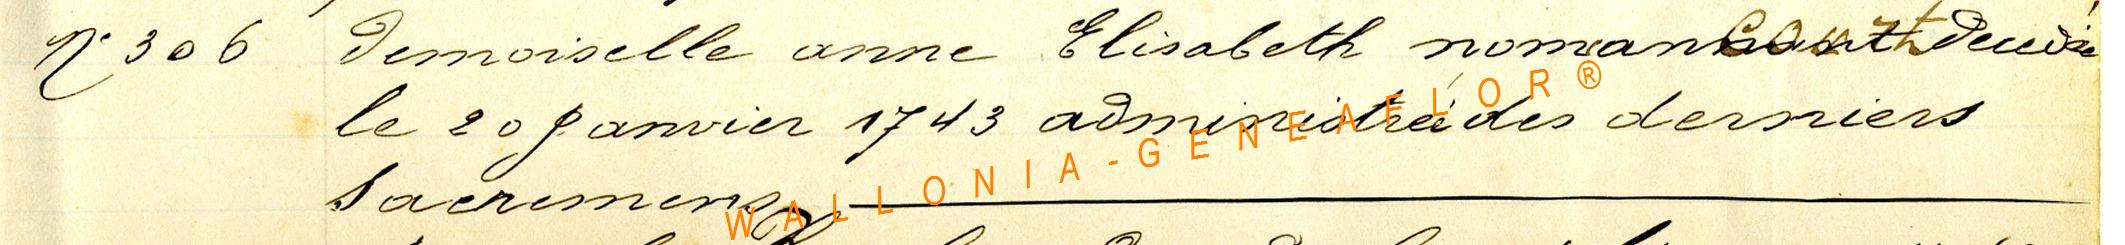 N° 306 Demoiselle anne Elisabeth Decedée
le 20 janvier 1743 administrée des derniers
Sacremens
WALLONIA-GENEAFLOR®